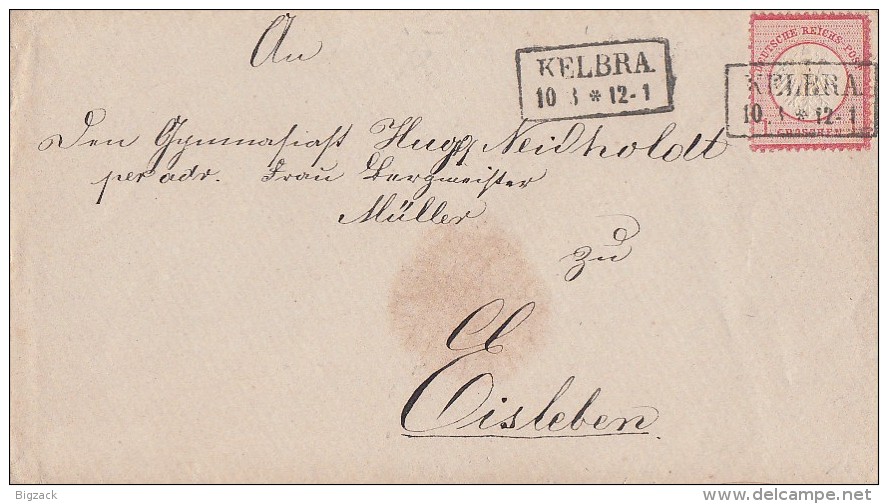 An
KELBRA
10 3 * 12-1
DEUTSCHE REICHS-POST
KELBRA
10 3 * 12-1
1 GROSCHEN
Den Gymnasiast Hugo Neidholdt
per adr. Frau Bergmeister
Müller
zu
Eisleben
Bigzack
www.delcampe.net